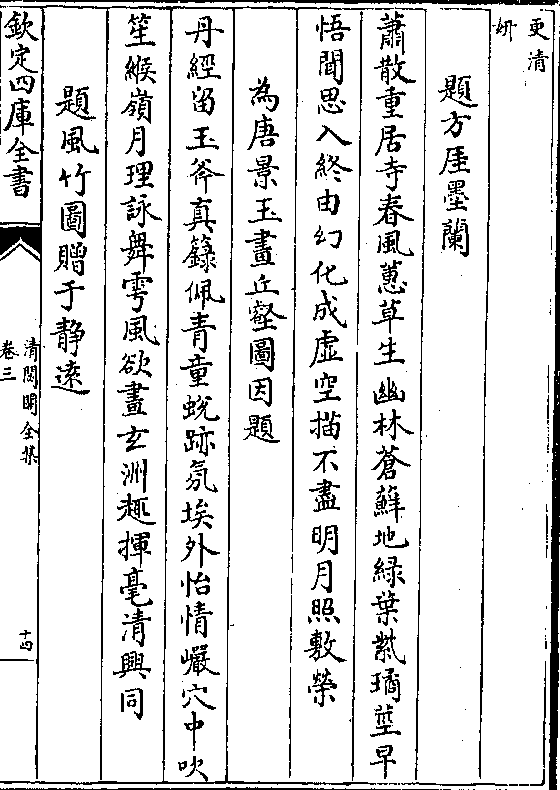 更清
妍
題方厓墨蘭
蕭散重居寺春風蕙草生幽林蒼蘚地綠葉紫璚莖早
悟聞思入終由幻化成虛空描不盡明月照敷榮
為唐景玉畫丘壑圖因題
丹經留玉斧真籙佩青童蛻跡氛埃外怡情巖穴中吹
笙緱嶺月理詠舞雩風欲畫玄洲趣揮毫清興同
題風竹圖贈于靜遠
欽定四庫全書
清閟閣全集
卷三
十四